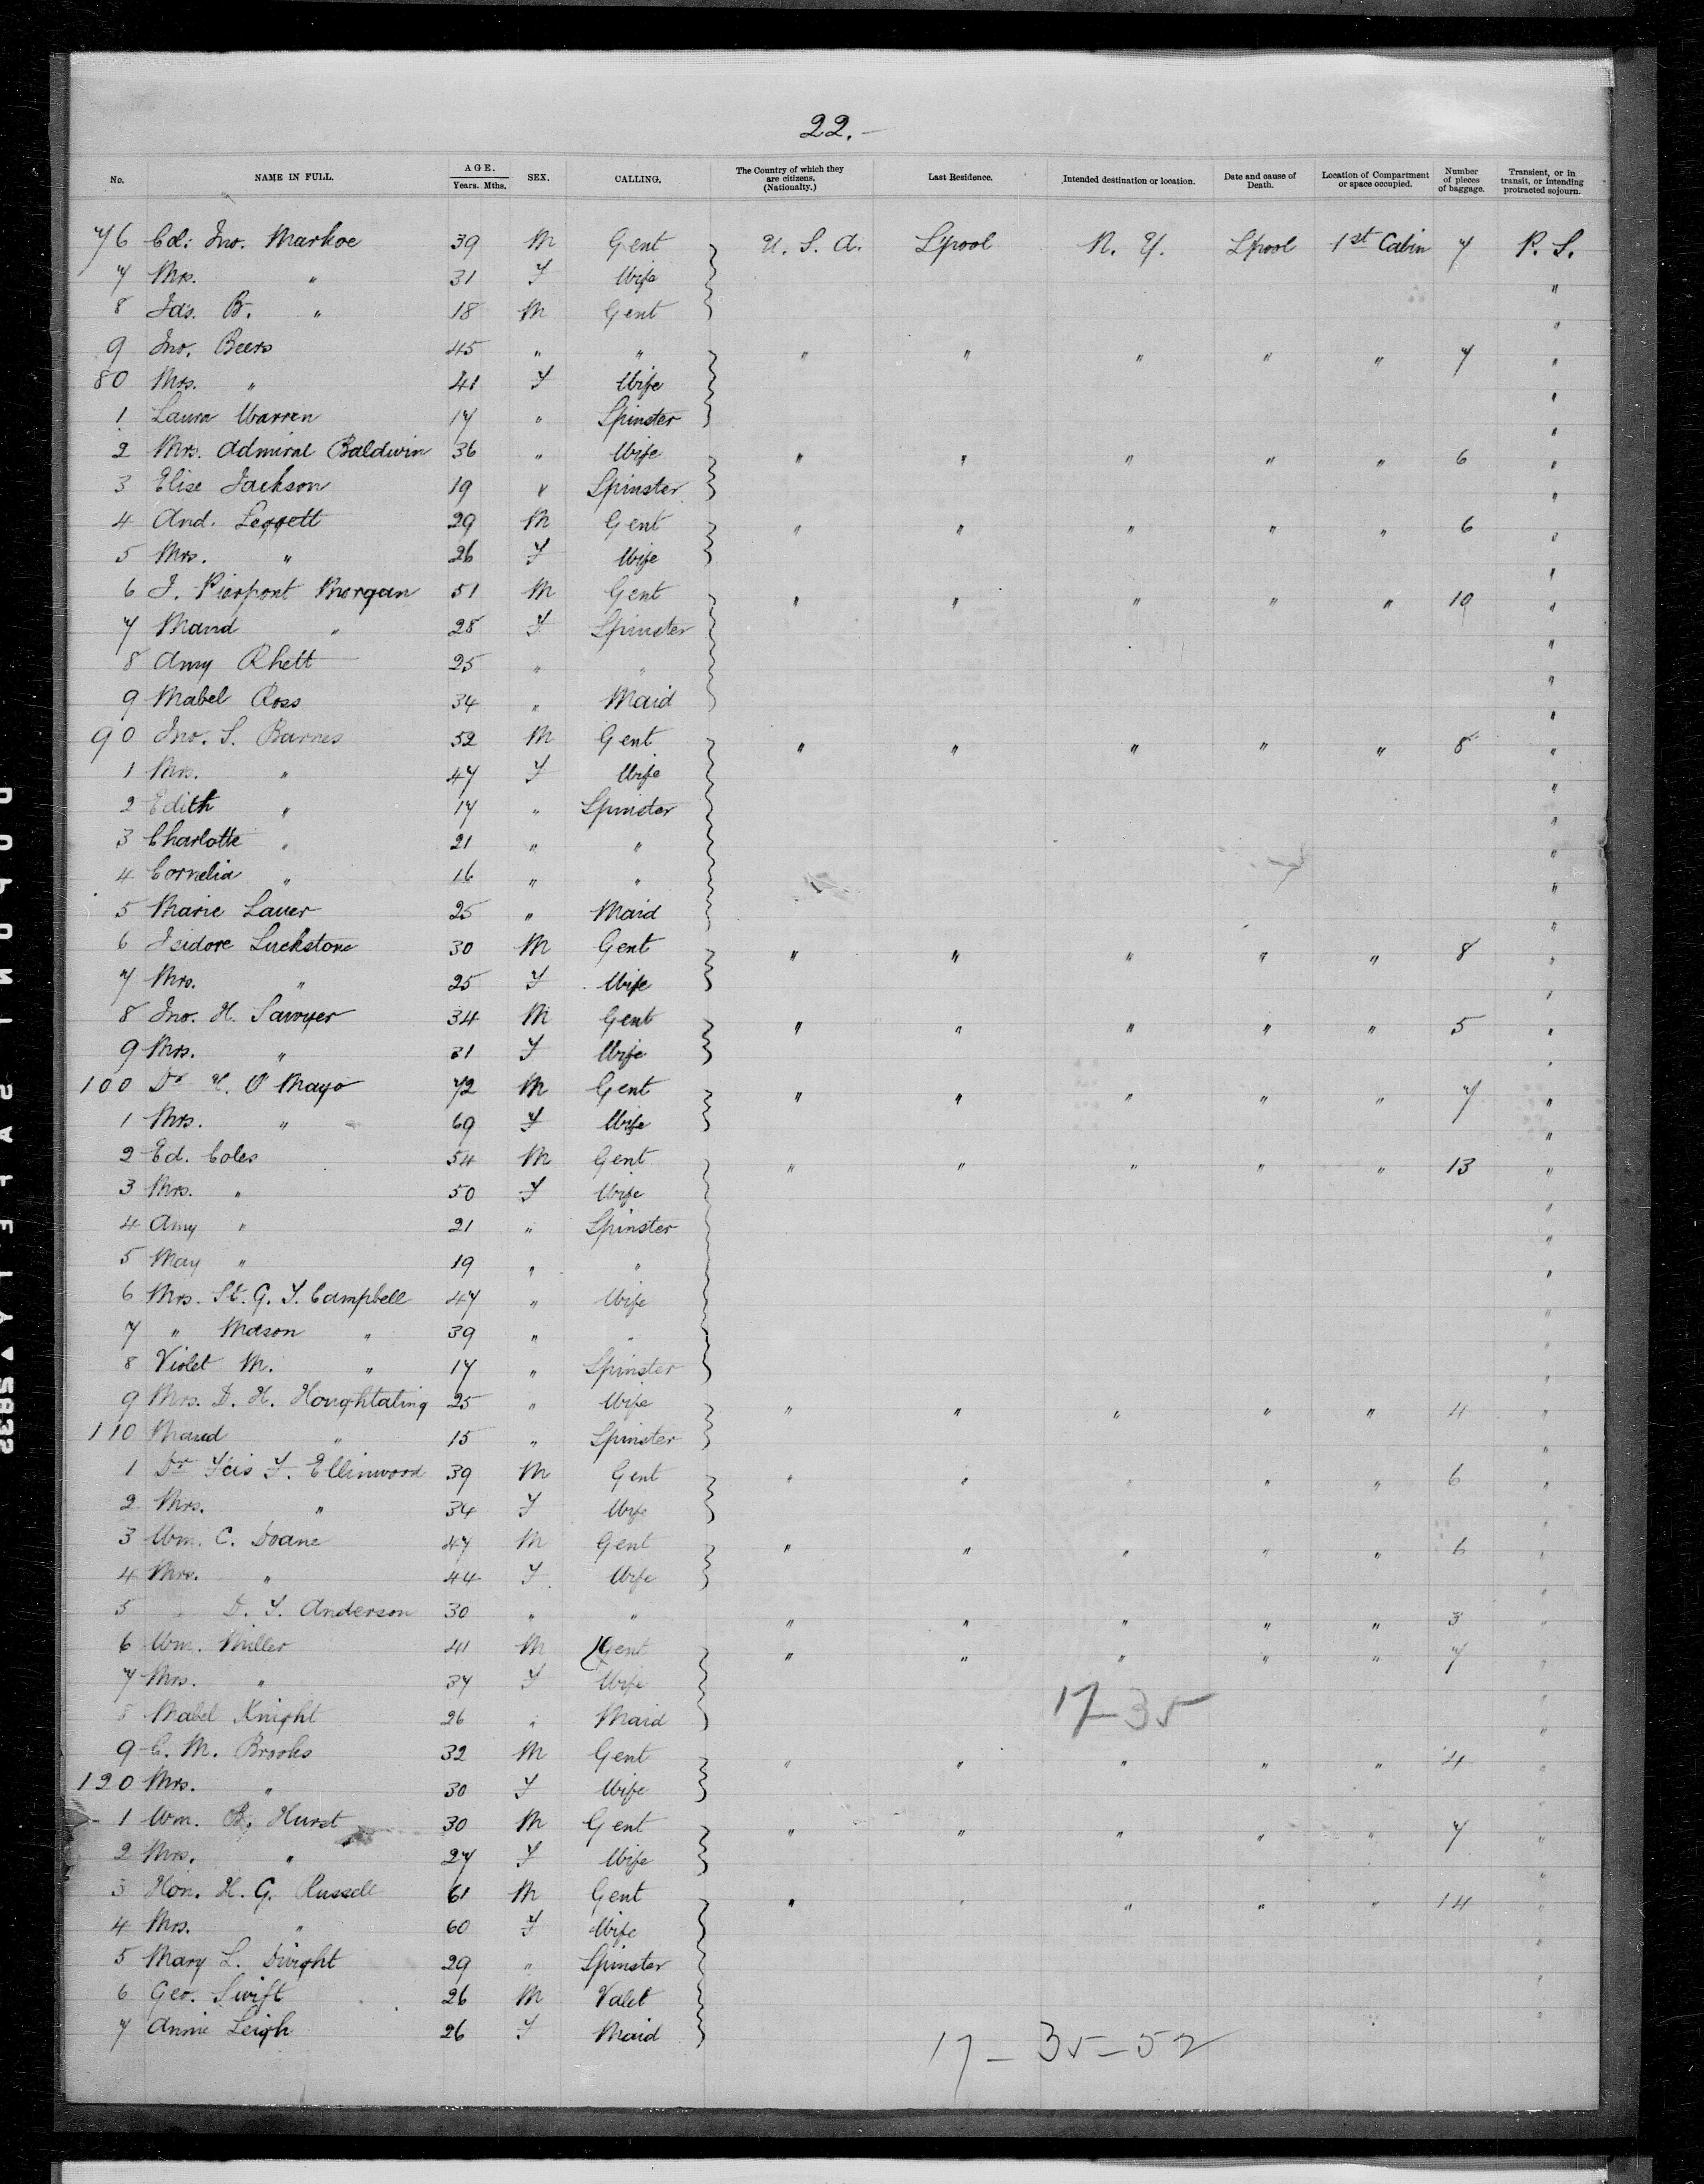 22.-
No. NAME IN FULL. AGE. Years. Mths. SEX. CALLING. The Country of which they are citizens. (Nationalty.) Last Residence. Intended destination or location. Date and cause of Death. Location of Compartment or space occupied. Number of pieces of baggage. Transient, or in transit, or intending protracted sojourn.
76 Col: Jno. Markoe 39 M Gent U. S. A. L'pool N. Y. L'pool 1st Cabin 7 P. S.
7 Mrs. " 31 F Wife "
8 Jas. B. " 18 M Gent "
9 Jno. Beers 45 " " " " " " " 7 "
80 Mrs. " 41 F Wife "
1 Laura Warren 17 " Spinster "
2 Mrs. Admiral Baldwin 36 " Wife " " " " " 6 "
3 Elise Jackson 19 " Spinster "
4 And. Leggett 29 M Gent " " " " " 6 "
5 Mrs. " 26 F Wife "
6 J. Pierpont Morgan 51 M Gent " " " " " 19 "
7 Maud " 28 F Spinster "
8 Amy Rhett 25 " " "
9 Mabel Ross 34 " Maid "
90 Jno. S. Barnes 52 M Gent " " " " " 8 "
1 Mrs. " 47 F Wife "
2 Edith " 17 " Spinster "
3 Charlotte " 21 " " "
4 Cornelia " 16 " " "
5 Marie Lauer 25 " Maid "
6 Isidore Luckstone 30 M Gent " " " " " 8 "
7 Mrs. " 25 F Wife "
8 Jno. H. Sawyer 34 M Gent " " " " " 5 "
9 Mrs. " 31 F Wife "
100 Dr H. O Mayo 72 M Gent " " " " " 7 "
1 Mrs. " 69 F Wife "
2 Ed. Coles 54 M Gent " " " " " 13 "
3 Mrs. " 50 F Wife "
4 Amy " 21 " Spinster "
5 May " 19 " " "
6 Mrs. St. G. T. Campbell 47 " Wife "
7 " Mason " 39 " " "
8 Violet M. " 17 " Spinster "
9 Mrs. D. H. Houghtaling 25 " Wife " " " " " 4 "
110 Maud " 15 " Spinster "
1 Dr Fcis F. Ellinwood 39 M Gent " " " " " 6 "
2 Mrs. " 34 F Wife "
3 Wm. C. Doane 47 M Gent " " " " " 6 "
4 Mrs. " 44 F Wife "
5 " D. T. Anderson 30 " " " " " " " 3 "
6 Wm. Miller 41 M Gent " " " " " 7 "
7 Mrs. " 37 F Wife "
17-35
8 Mabel Knight 26 " Maid "
9 C. M. Brooks 32 M Gent " " " " " 4 "
120 Mrs. " 30 F Wife "
1 Wm. B. Hurst 30 M Gent " " " " " 7 "
2 Mrs. " 27 F Wife "
3 Hon. H. G. Russell 61 M Gent " " " " " 14 "
4 Mrs. " 60 F Wife "
5 Mary L. Dwight 29 " Spinster "
6 Geo. Swift 26 M Valet "
7 Annie Leigh 26 F Maid "
17-35-52